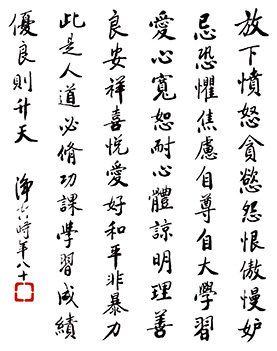 放下憤怒貪慾怨恨傲慢妒
忌恐懼焦慮自尊自大學習
愛心寬恕耐心體諒明理善
良安祥喜悅愛好和平非暴力
此是人道必脩功課學習成績
優良則升天
淨空時年八十